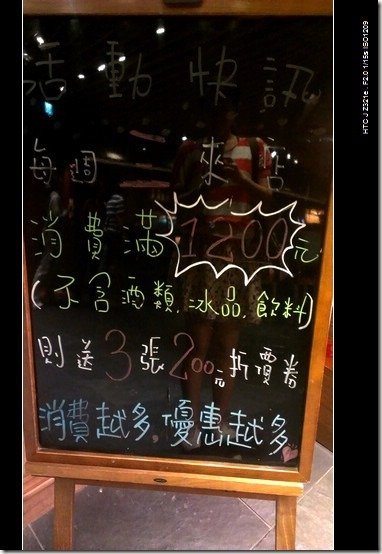 活動快訊
每週二來店
消費滿1200元
(不含酒類.冰品.飲料)
則送3張200元折價券
消費越多,優惠越多
HTC J Z321e F2.0 1/15s ISO1209